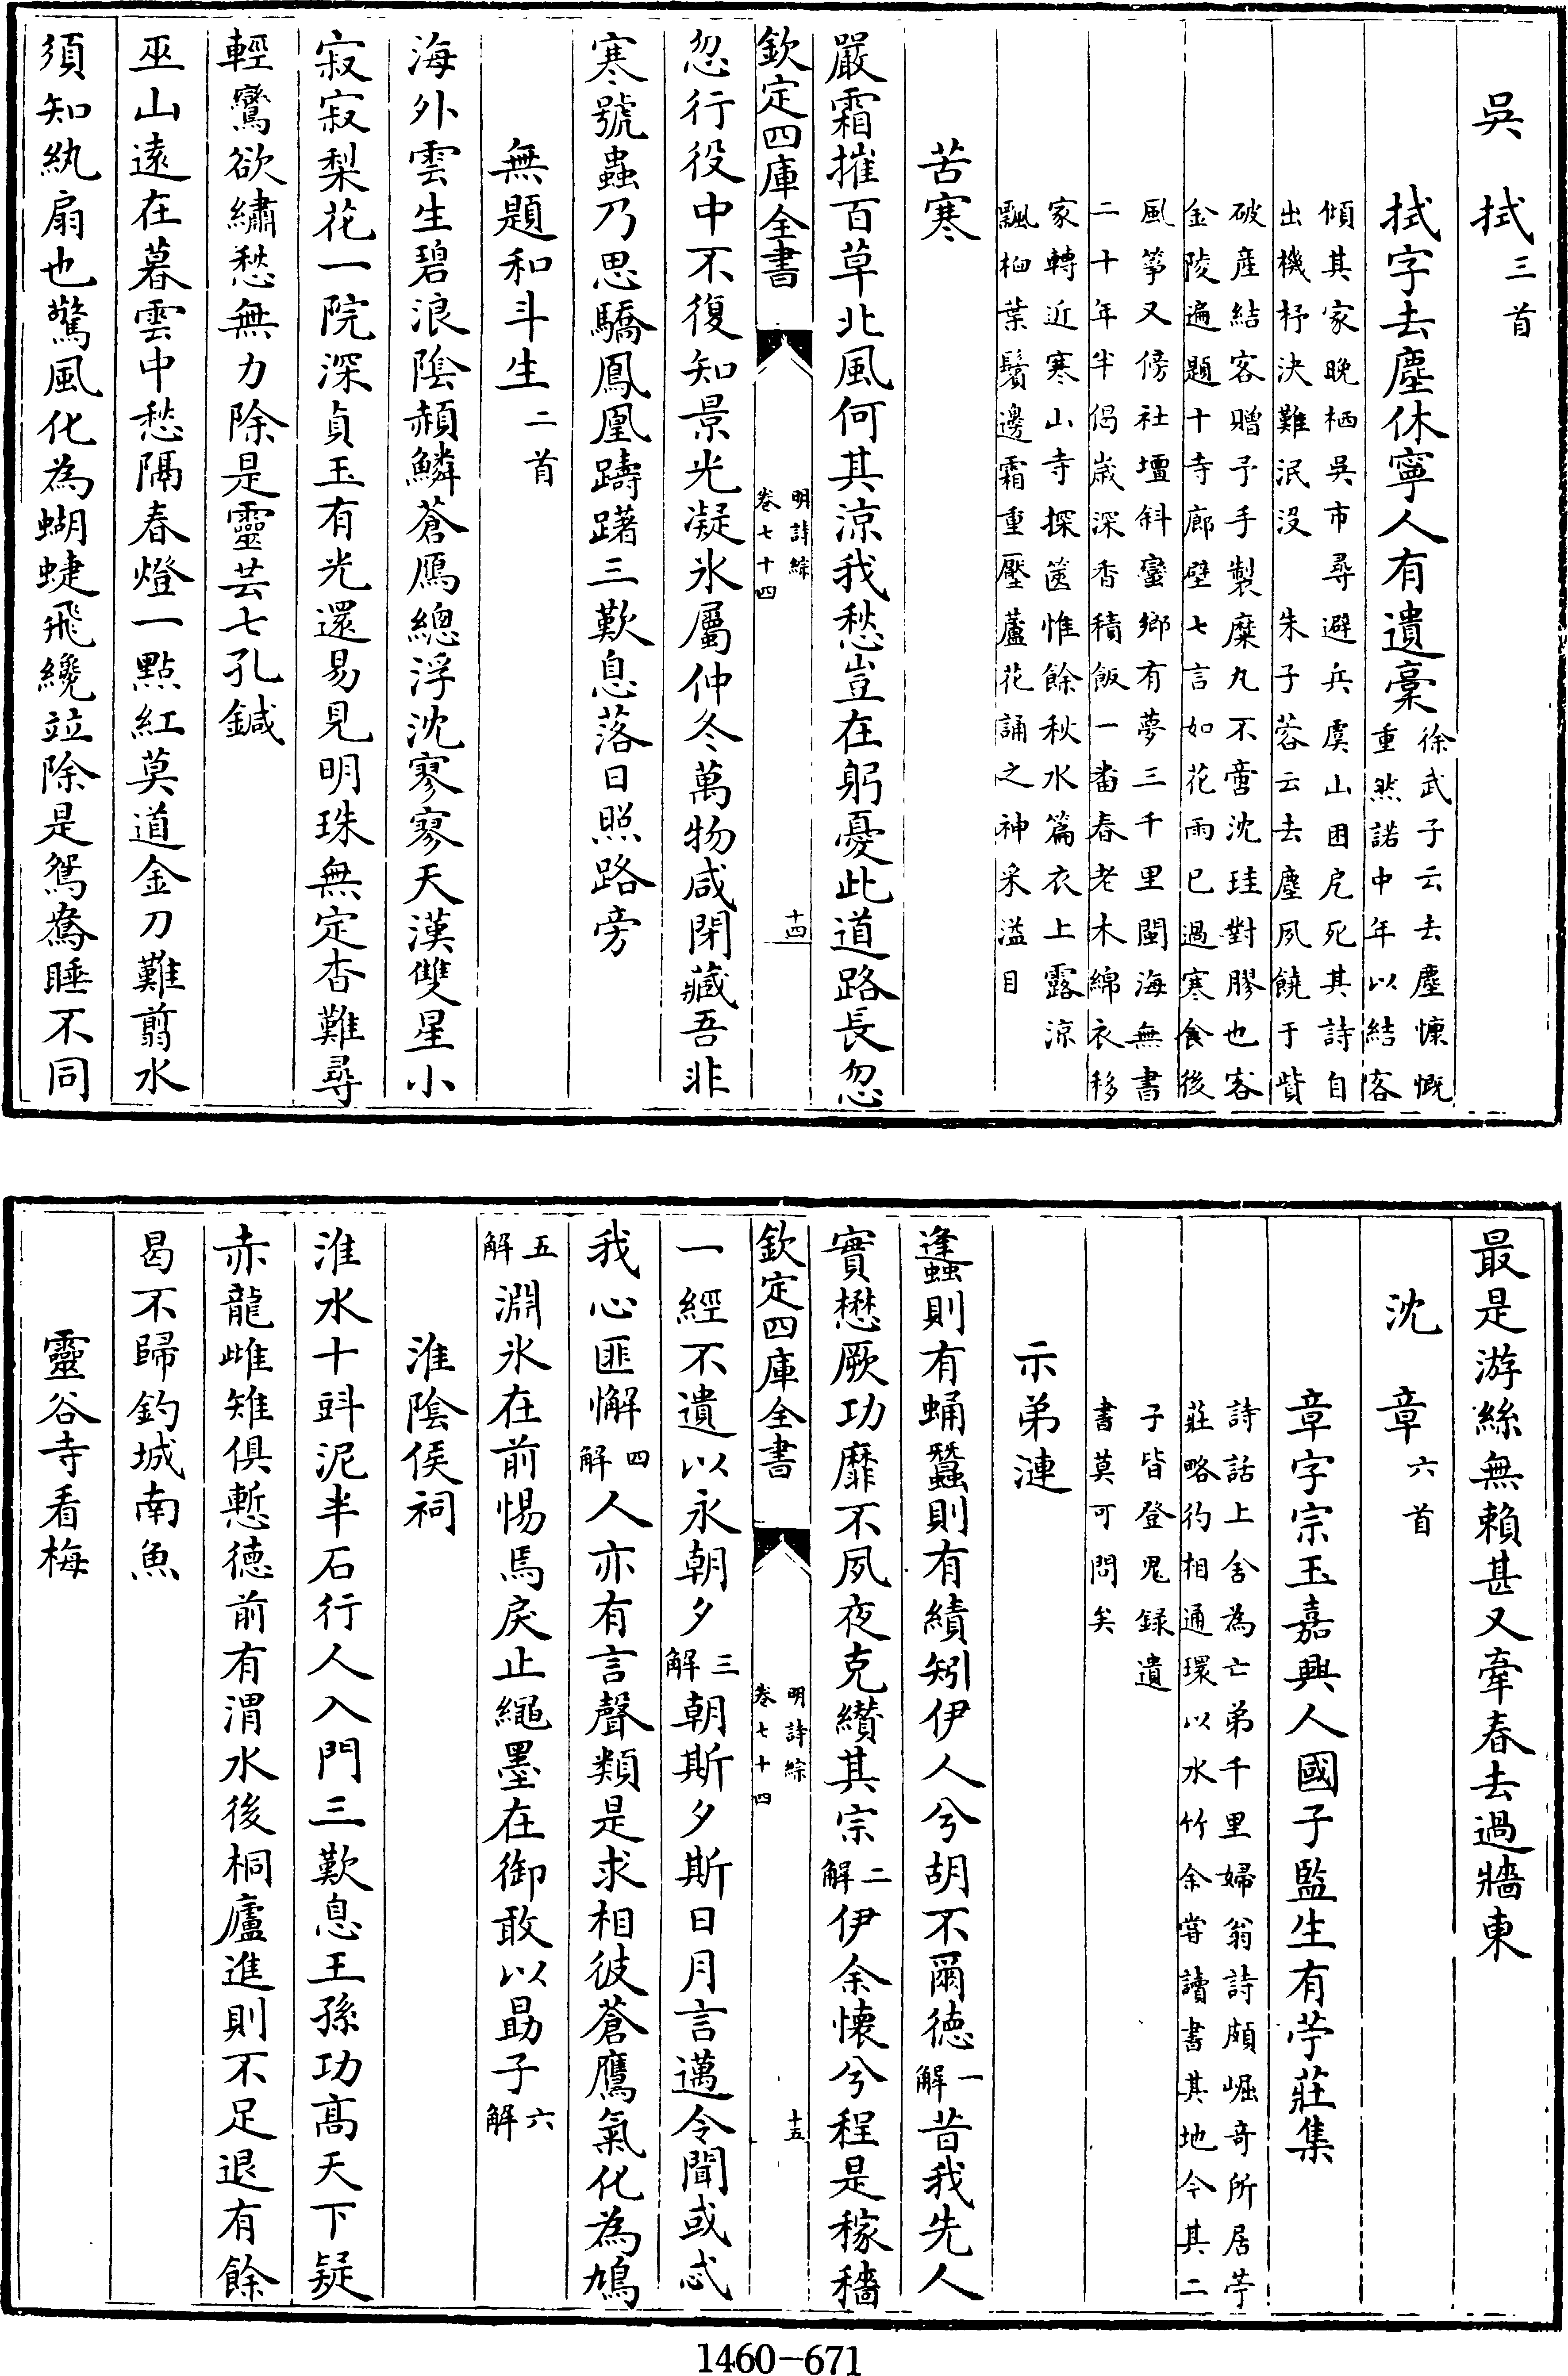 吳拭三首
拭字去塵休寧人有遺稾徐武子云去塵慷慨
重然諾中年以結客
傾其家晩栖吳市尋避兵虞山困戹死其詩自
出機杼決難泯没　朱子蓉云去塵夙饒于貲
破產結客贈予手製糜丸不啻沈珪對膠也客
金陵遍題十寺廊壁七言如花雨已過寒食後
風筝又傍社壇斜蠻鄉有夢三千里閩海無書
二十年半偈嵗深香積飯一畨春老木綿衣移
家轉近寒山寺探篋惟餘秋水篇衣上露涼
飄桕葉鬢邊霜重壓蘆花誦之神采溢目
苦寒
嚴霜摧百草北風何其涼我愁豈在躬憂此道路長忽
欽定四庫全書
明詩綜
卷七十四
十四
忽行役中不復知景光凝氷屬仲冬萬物咸閉藏吾非
寒號蟲乃思驕鳳凰躊躇三歎息落日照路旁
無題和斗生二首
海外雲生碧浪陰頳鱗蒼鴈總浮沈寥寥天漢雙星小
寂寂梨花一院深貞玉有光還易見明珠無定杳難尋
輕鸞欲繡愁無力除是靈芸七孔鍼
巫山遠在暮雲中愁隔春燈一點紅莫道金刀難翦水
須知紈扇也驚風化為蝴蜨飛纔竝除是鴛鴦睡不同
最是游絲無賴甚又牽春去過牆東
沈章六首
章字宗玉嘉興人國子監生有苧莊集
詩話上舍為亡弟千里婦翁詩頗崛奇所居苧
莊略彴相通環以水竹余嘗讀書其地今其二
子皆登鬼録遺
書莫可問矣
示弟漣
蠭則有蛹蠶則有績矧伊人兮胡不爾德一解昔我先人
實懋厥功靡不夙夜克纘其宗二解伊余懷兮程是稼穡
欽定四庫全書
明詩綜
卷七十四
十五
一經不遺以永朝夕三解朝斯夕斯日月言邁令聞或忒
我心匪懈四解人亦有言聲類是求相彼蒼鷹氣化為鳩
五解淵氷在前惕焉戾止繩墨在御敢以勗子六解
淮隂侯祠
淮水十㪷泥半石行人入門三歎息王孫功髙天下疑
赤龍雌雉俱慙德前有渭水後桐廬進則不足退有餘
曷不歸釣城南魚
靈谷寺看梅
1460-671